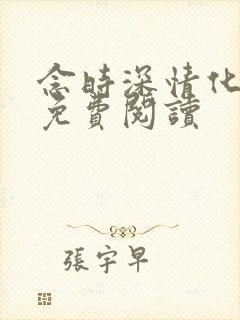 念時深情化
免費閱讀
張宇早